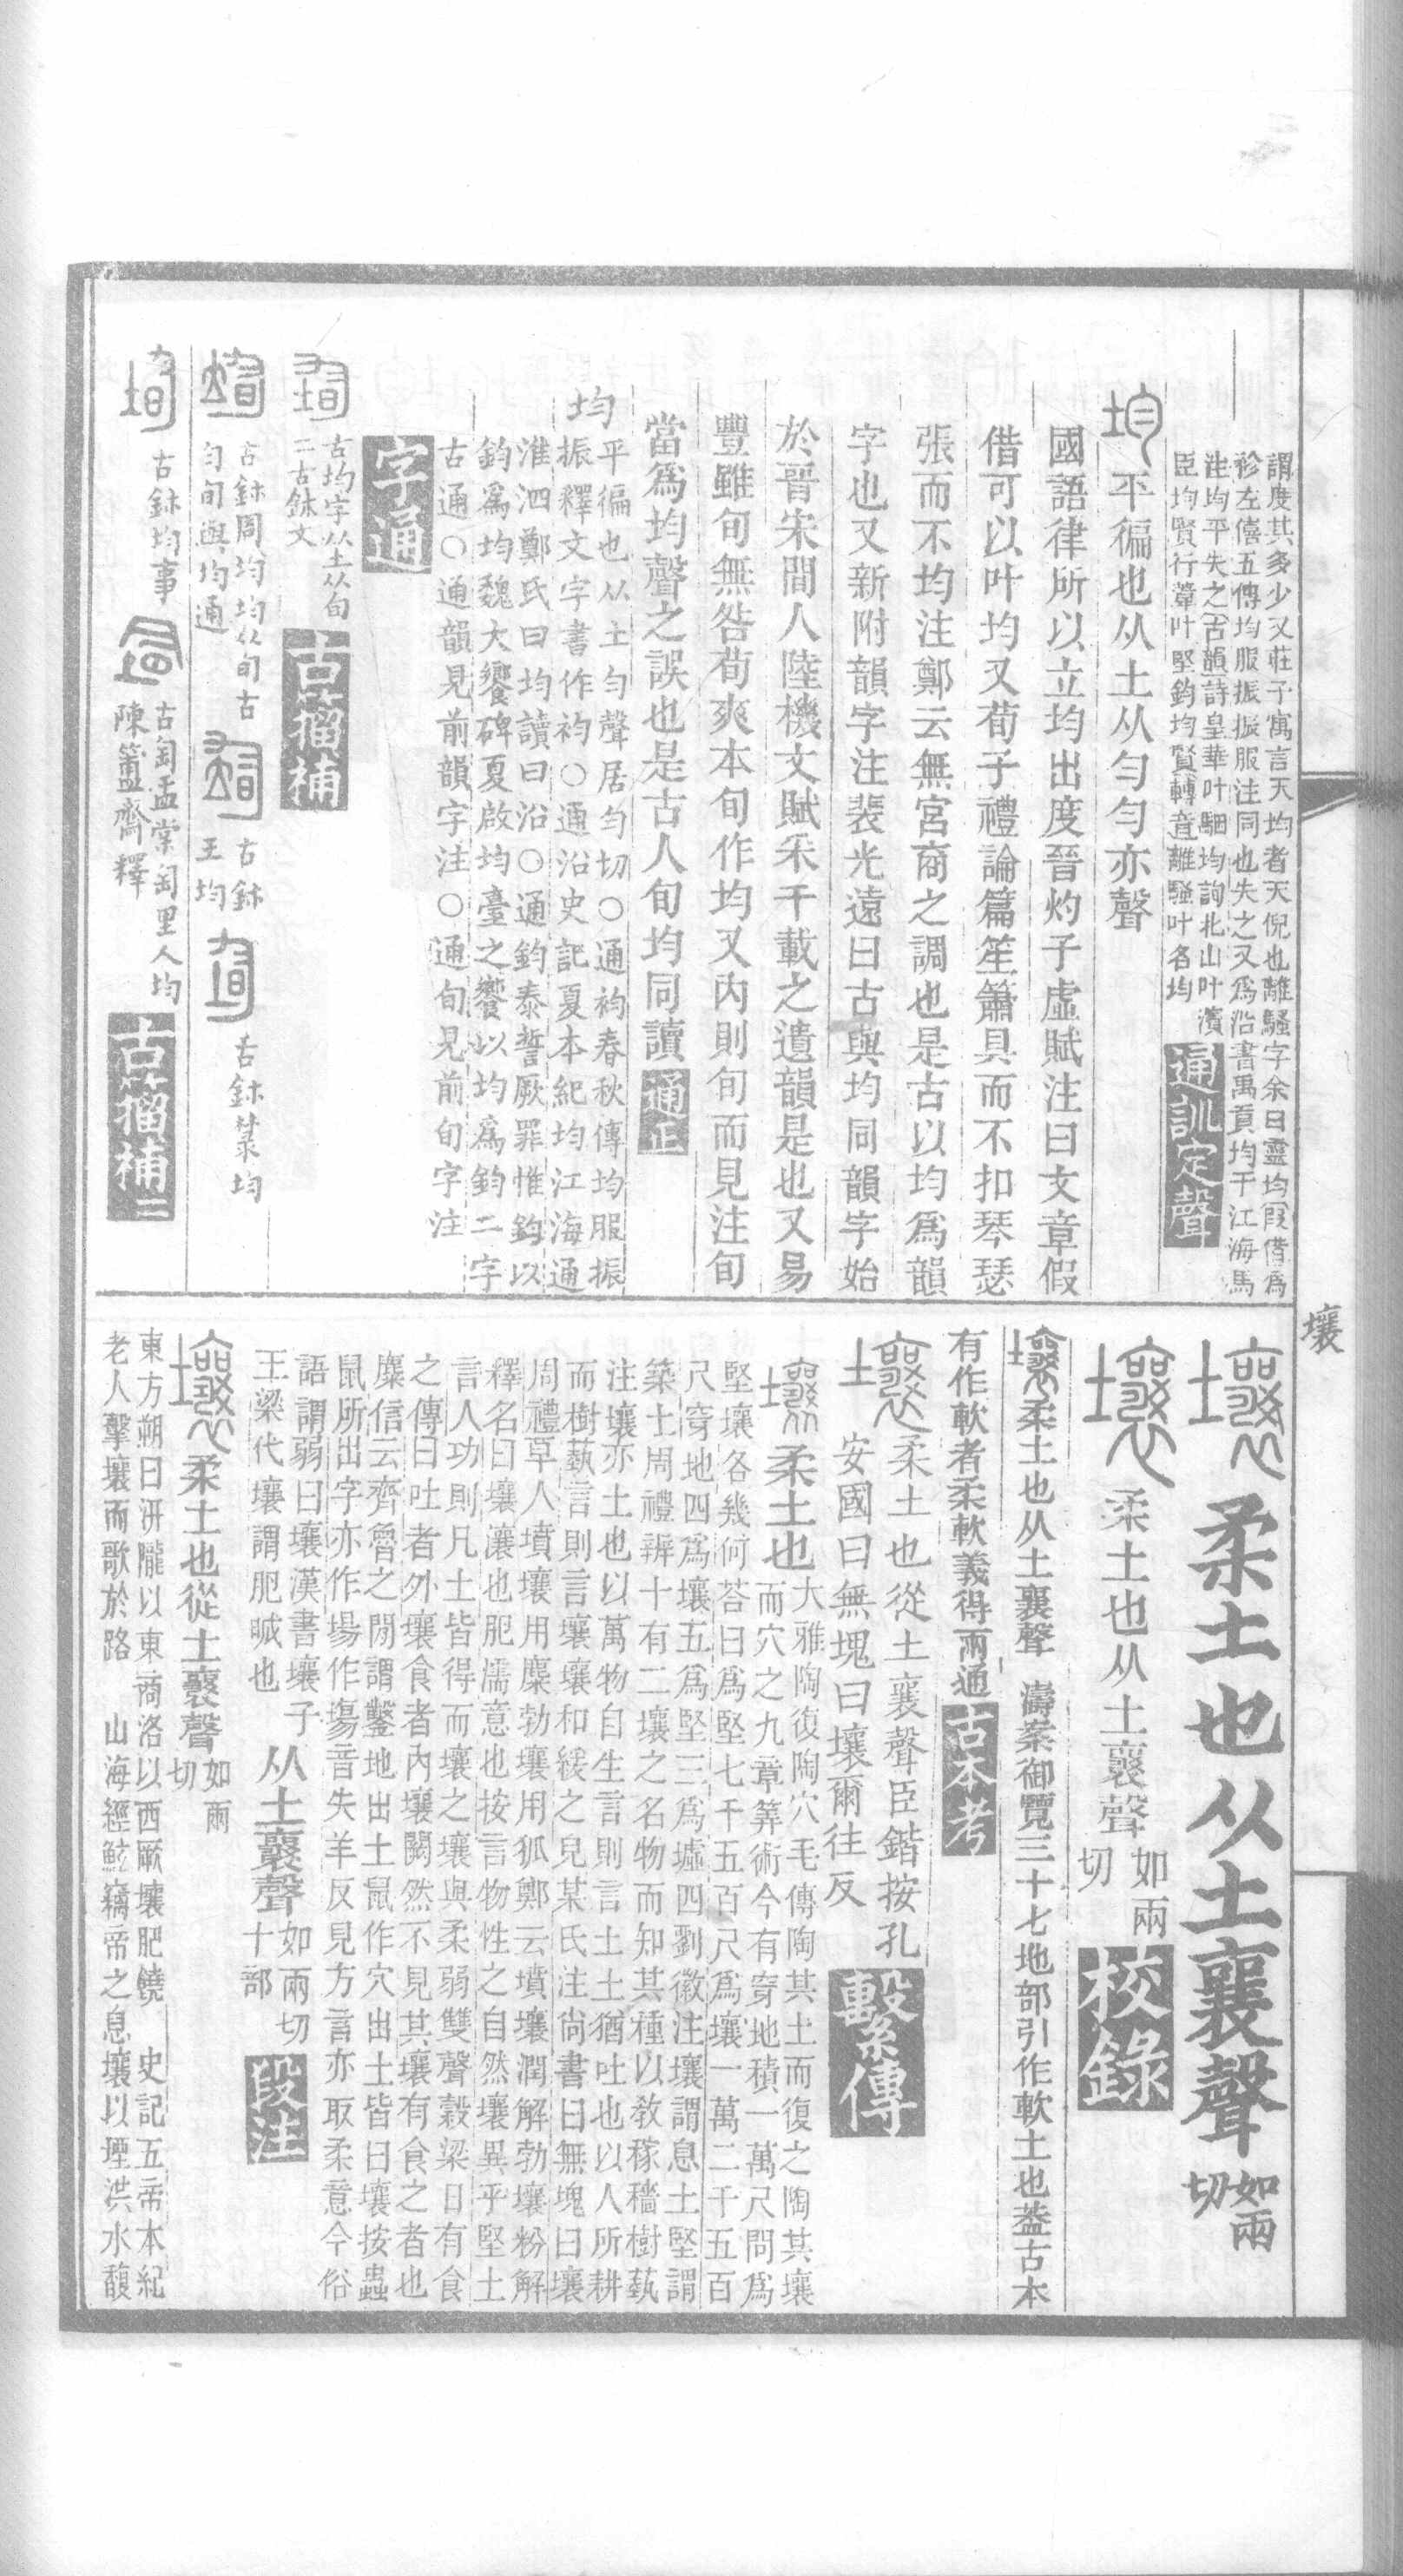 謂度其多少又莊子寓言天均者天倪也離騷字余曰靈均假借爲
袗左僖五傳均服振振服注同也失之又爲沿書禹貢均于江海馬
注均平失之古韻詩皇華叶駰均詢北山叶濱
臣均賢行葦叶堅鈞均賢轉音離騷叶名均
通訓定聲
均平徧也从土从勻勻亦聲
國語律所以立均出度晉灼子虛賦注曰文章假
借可以叶均又荀子禮論篇笙簫具而不扣琴瑟
張而不均注鄭云無宮商之調也是古以均爲韻
字也又新附韻字注裴光遠曰古與均同韻字始
於晉宋間人陸機文賦釆千載之遺韻是也又易
豐雖旬無咎荀爽本旬作均又內則旬而見注旬
當爲均聲之誤也是古人旬均同讀
通正
均平徧也从土勻聲居勻切○通袀春秋傳均服振
振釋文字書作袀○通沿史記夏本紀均江海通
淮泗鄭氏曰均讀曰沿○通鈞泰誓厥罪惟鈞以
鈞爲均魏大饗碑夏啟均臺之饗以均爲鈞二字
古通○通韻見前韻字注○通旬見前旬字注
字通
古均字从土从旬
二古鉢文
古籀補
古鉢周均均从旬古
勻旬與均通
古鉢
王均
古鉢㯟均
古鉢均事
古匋孟常匋里人均
陳簠齋釋
古籀補二
壤
柔土也从土襄聲如兩切
柔土也从土襄聲如兩切
校錄
柔土也从土襄聲 濤案御覽三十七地部引作軟土也葢古本
有作軟者柔軟義得兩通
古本考
柔土也從土襄聲臣鍇按孔
安國曰無塊曰壤爾往反
繫傳
柔土也大雅陶復陶穴毛傳陶其土而復之陶其壤
而穴之九章筭術今有穿地積一萬尺問爲
堅壤各幾何荅曰爲堅七千五百尺爲壤一萬二千五百
尺穿地四爲壤五爲堅三爲墟四劉徽注壤謂息土堅謂
築土周禮辨十有二壤之名物而知其種以敎稼穡樹蓺
注壤亦土也以萬物自生言則言土土猶吐也以人所耕
而樹蓺言則言壤壤和緩之皃某氏注尙書曰無塊曰壤
周禮草人墳壤用麋勃壤用狐鄭云墳壤潤解勃壤粉解
釋名曰壤瀼也肥濡意也按言物性之自然壤異乎堅土
言人功則凡土皆得而壤之壤與柔弱雙聲穀梁日有食
之傳曰吐者外壤食者內壤闕然不見其壤有食之者也
麋信云齊魯之閒謂鑿地出土鼠作穴出土皆曰壤按蟲
鼠所出字亦作場作塲音失羊反見方言亦取柔意今俗
語謂弱曰壤漢書壤子
王梁代壤謂肥晠也
从土襄聲如兩切十部
段注
柔土也從土襄聲如兩切
東方朔曰汧隴以東商洛以西厥壤肥饒 史記五帝本紀
老人擊壤而歌於路 山海經鯀竊帝之息壤以堙洪水馥